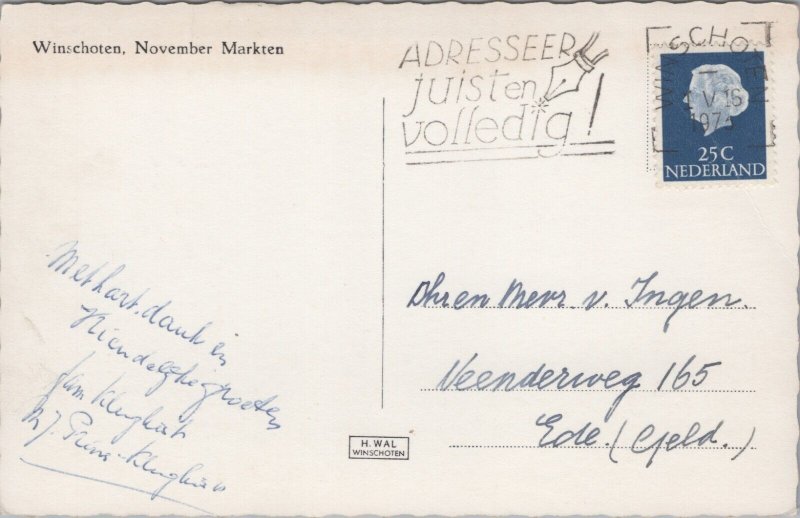 Winschoten, November Markten
ADRESSEER
juist en
volledig!
WINSCHOTEN
V 16
25C
NEDERLAND
Met hart. dank en
Vriendelijke groeten
fam
Mevr v. Ingen.
Veenderweg 165
Ede. (Geld.)
H. WAL
WINSCHOTEN